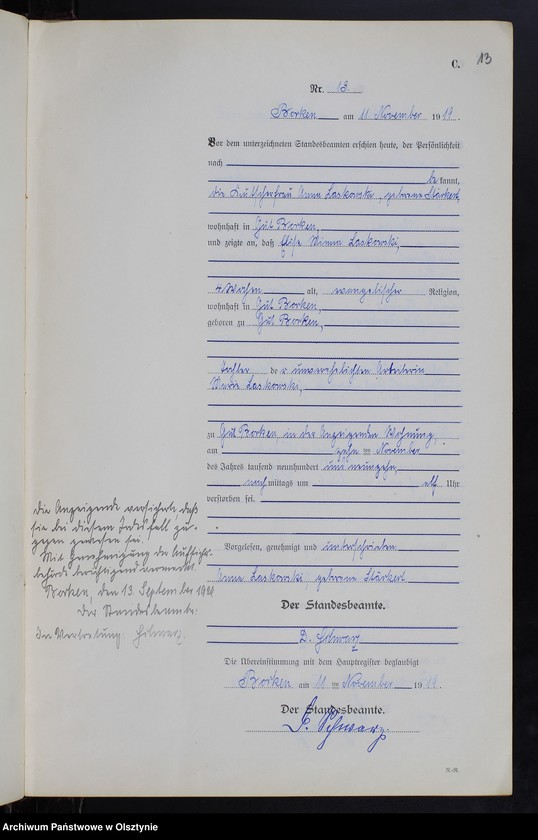 C. 13
Nr. 13
Borken am 11 November 1919.
Vor dem unterzeichneten Standesbeamten erschien heute, der Persönlichkeit
nach
be kannt,
die Kutscherfrau Anna Laskowski, geborene Stärkert,
wohnhaft in Gut Borken,
und zeigte an, daß Minna Laskowski,
4 Wochen alt, evangelischer Religion,
wohnhaft in Gut Borken,
geboren zu Gut Borken,
Tochter de r unverehelichten Arbeiterin
Maria Laskowski,
zu Gut Borken, in der Anzeigenden Wohnung,
am zehn ten November
des Jahres tausend neunhundert und neunzehn,
nach mittags um elf Uhr
verstorben sei.
Vorgelesen, genehmigt und unterschrieben
Anna Laskowski, geborene Stärkert
Der Standesbeamte.
Die Übereinstimmung mit dem Hauptregister beglaubigt
Borken am 11 ten November 1919.
Der Standesbeamte.
Schwarz.
Die Anzeigende versichert, daß
sie bei diesem Todesfall zu-
gegen gewesen sei.
Mit Genehmigung der Aufsichts-
behörde berichtigend vermerkt.
Borken, den 13. September
Der Standesbeamte:
In Vertretung: Schwarz.
Archiwum Państwowe w Olsztynie